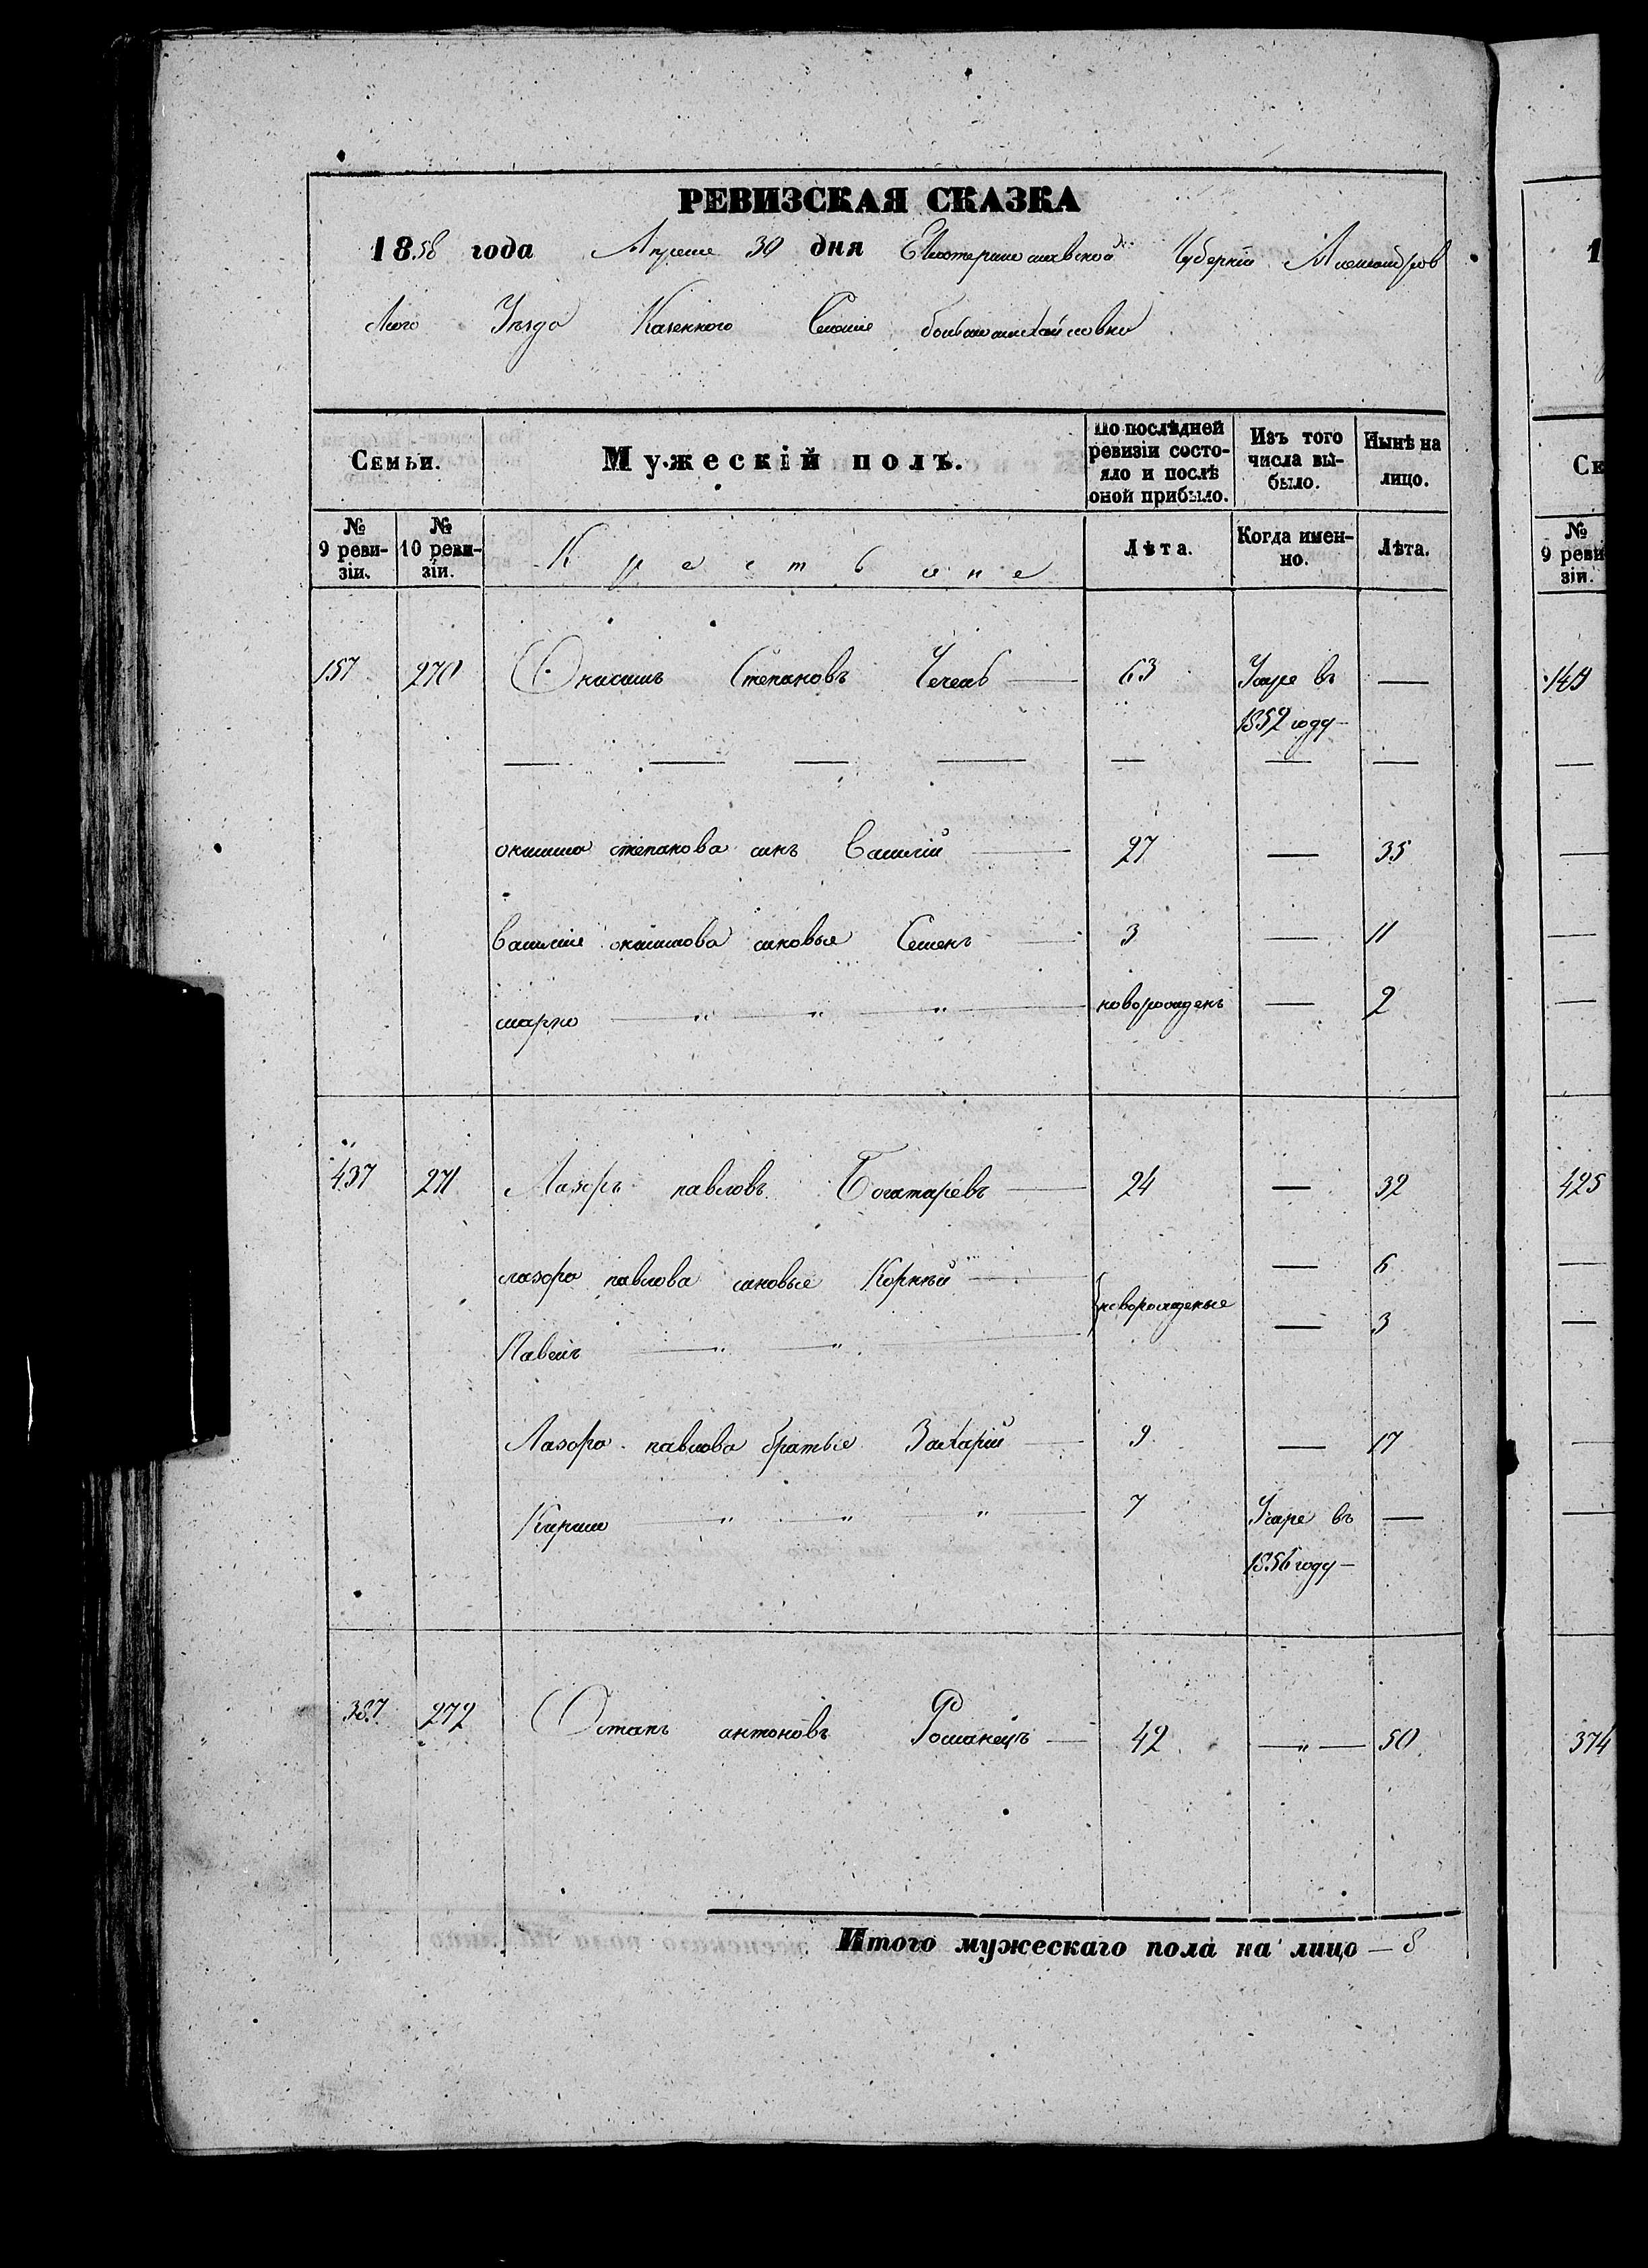 РЕВИЗСКАЯ СКАЗКА
1858 года Апреля 30 дня Екатеринославской Губерніи Александров
ского Уезда Казенного Селенія большемихайловки
Семьи. Мужескій полъ. По послѣдней ревизіи состояло и послѣ оной прибыло. Изъ того числа выбыло. Нынѣ на лицо.
№ 9 ревизіи. № 10 ревизіи. Крестьяне Лѣта. Когда именно. Лѣта.
157 270 Онисимъ Степановъ 63 Умре въ —
1852 году —
— — — — — — —
онисима степанова синъ Василій — 27 — 35
василія онисимова синовья Семенъ — 3 — 11
марко — " — " — " — новорожденъ — 2
437 271 Лазорь павловъ Богатаревъ — 24 — 32
лазоря павлова синовья Корнѣй — — 6
{новорожденые
Павелъ — " — " — — 3
Лазоря павлова братья Захарій — 9 — 17
Кирило — " — " — " — 7 Умре въ —
1856 году —
387 272 Остапъ антоновъ Романецъ — 42 — " — 50
Итого мужескаго пола на лицо — 8
1
Се
№
9 реви
зіи.
149
—
—
—
—
425
—
—
—
—
374